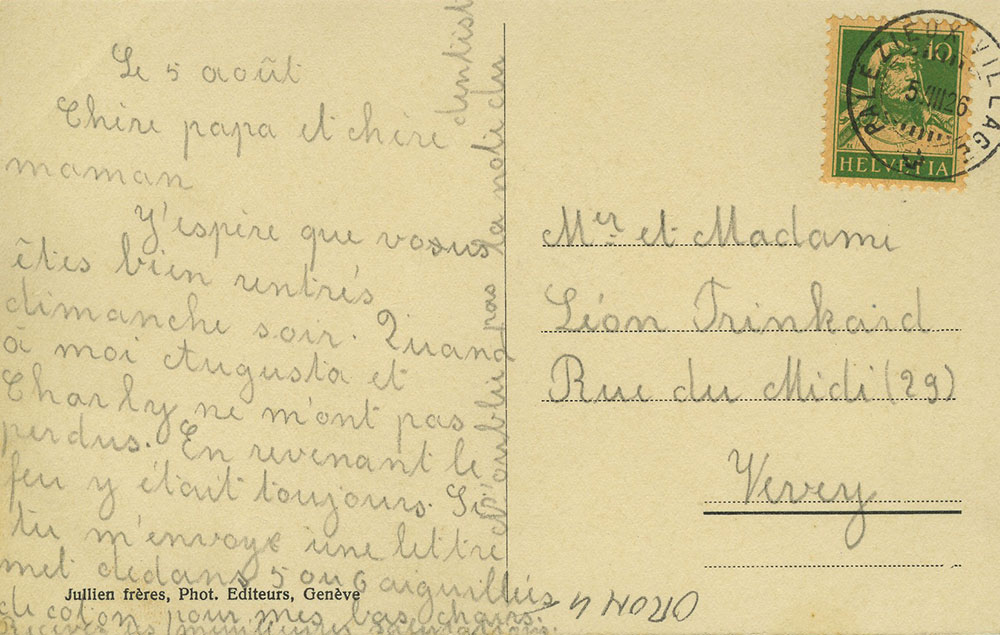 Le 5 août
Chère papa et chère
maman
Y'espère que vous
êtes bien rentrés
dimanche soir. Quand
à moi Augusta et
Charly ne m'ont pas
perdus. En revenant le
feu y était toujours. Si
tu m'envoye une lettre
met dedans 5 ou 6 aiguillés
de coton pour mes bas chairs.
Recever les meilleures salutations.
N'oublie pas la note du
dentist
Jullien frères, Phot. Editeurs, Genève
10
HELVETIA
PALÉZIEUX-VILLAGE
5.VIII.26
Mer et Madame
Léon Trinkard
Rue du Midi (29)
Vevey
ORON 4